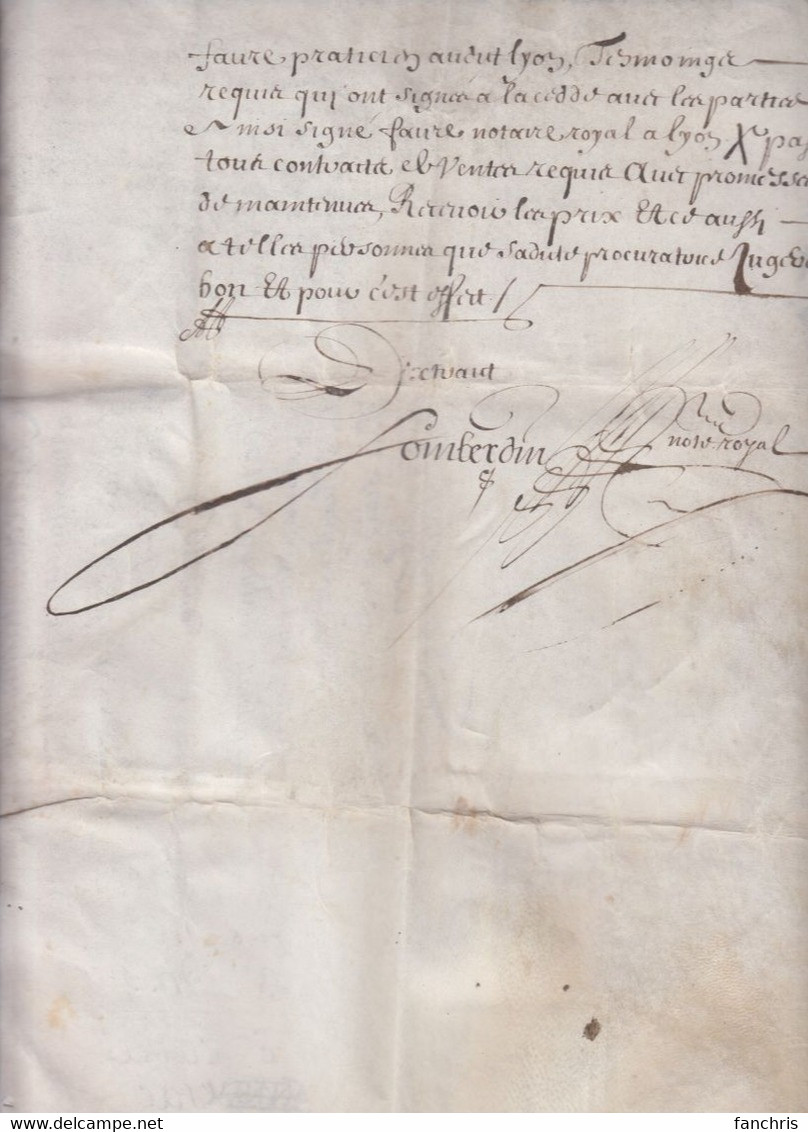 faure praticien audit lyon, Tesmoings
requis qui ont signés a la cedde avec les parties
et Ainsi signé faure notaire royal a lyon X pas
tous contracts et Ventes requis Avec promesse
de maintenues, Recevoir les prix Et ce aussi
a telles personnes que sadite procuratrice Jugera
bon Et pour c'est effect /
Extraict
note royal
delcampe.net
fanchris